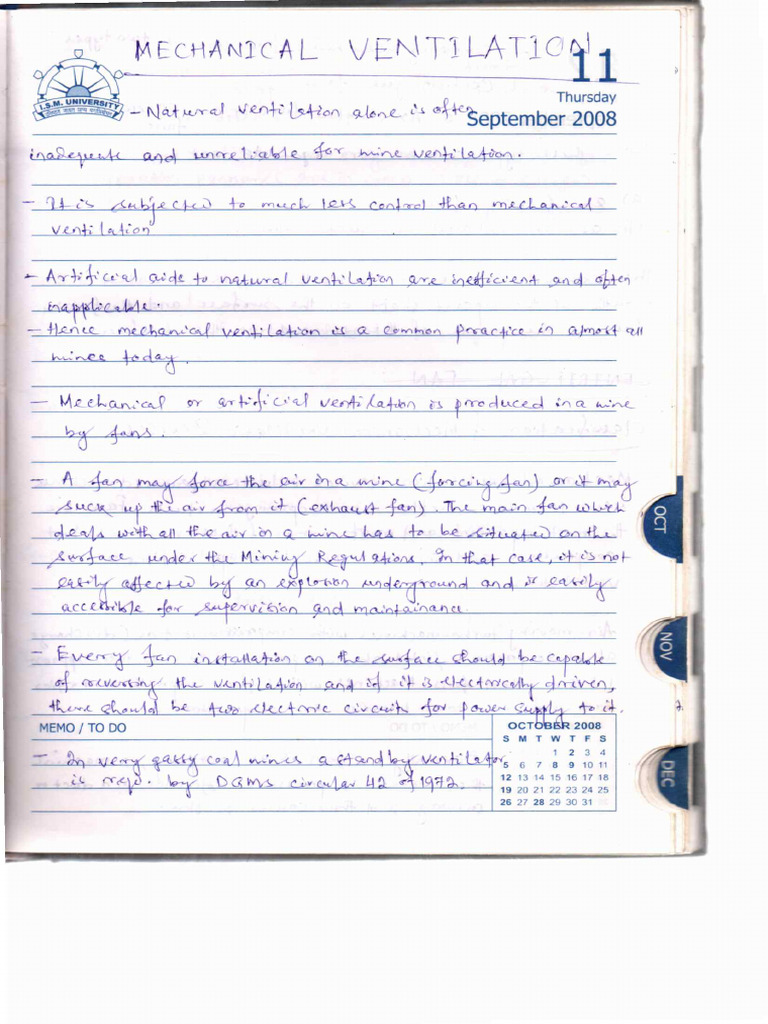 MECHANICAL VENTILATION
11
Thursday
September 2008
I.S.M. UNIVERSITY
- Natural ventilation alone is often
inadequate and unreliable for mine ventilation.
- It is subjected to much less control than mechanical
ventilation
- Artificial aids to natural ventilation are inefficient and often
inapplicable.
- Hence mechanical ventilation is a common practice in almost all
mines today.
- Mechanical or artificial ventilation is produced in a mine
by fans.
- A fan may force the air in a mine (forcing fan) or it may
suck up the air from it (exhaust fan). The main fan which
deals with all the air in a mine has to be situated on the
surface under the Mining Regulations. In that case, it is not
easily affected by an explosion underground and is easily
accessible for supervision and maintainance.
- Every fan installation on the surface should be capable
of reversing the ventilation and if it is electrically driven,
there should be two electric circuits for power supply to it.
MEMO / TO DO
- In very gassy coal mines a standby ventilator
is reqd. by DGMS circular 42 of 1972.
OCTOBER 2008
S M T W T F S
1 2 3 4
5 6 7 8 9 10 11
12 13 14 15 16 17 18
19 20 21 22 23 24 25
26 27 28 29 30 31
OCT
NOV
DEC